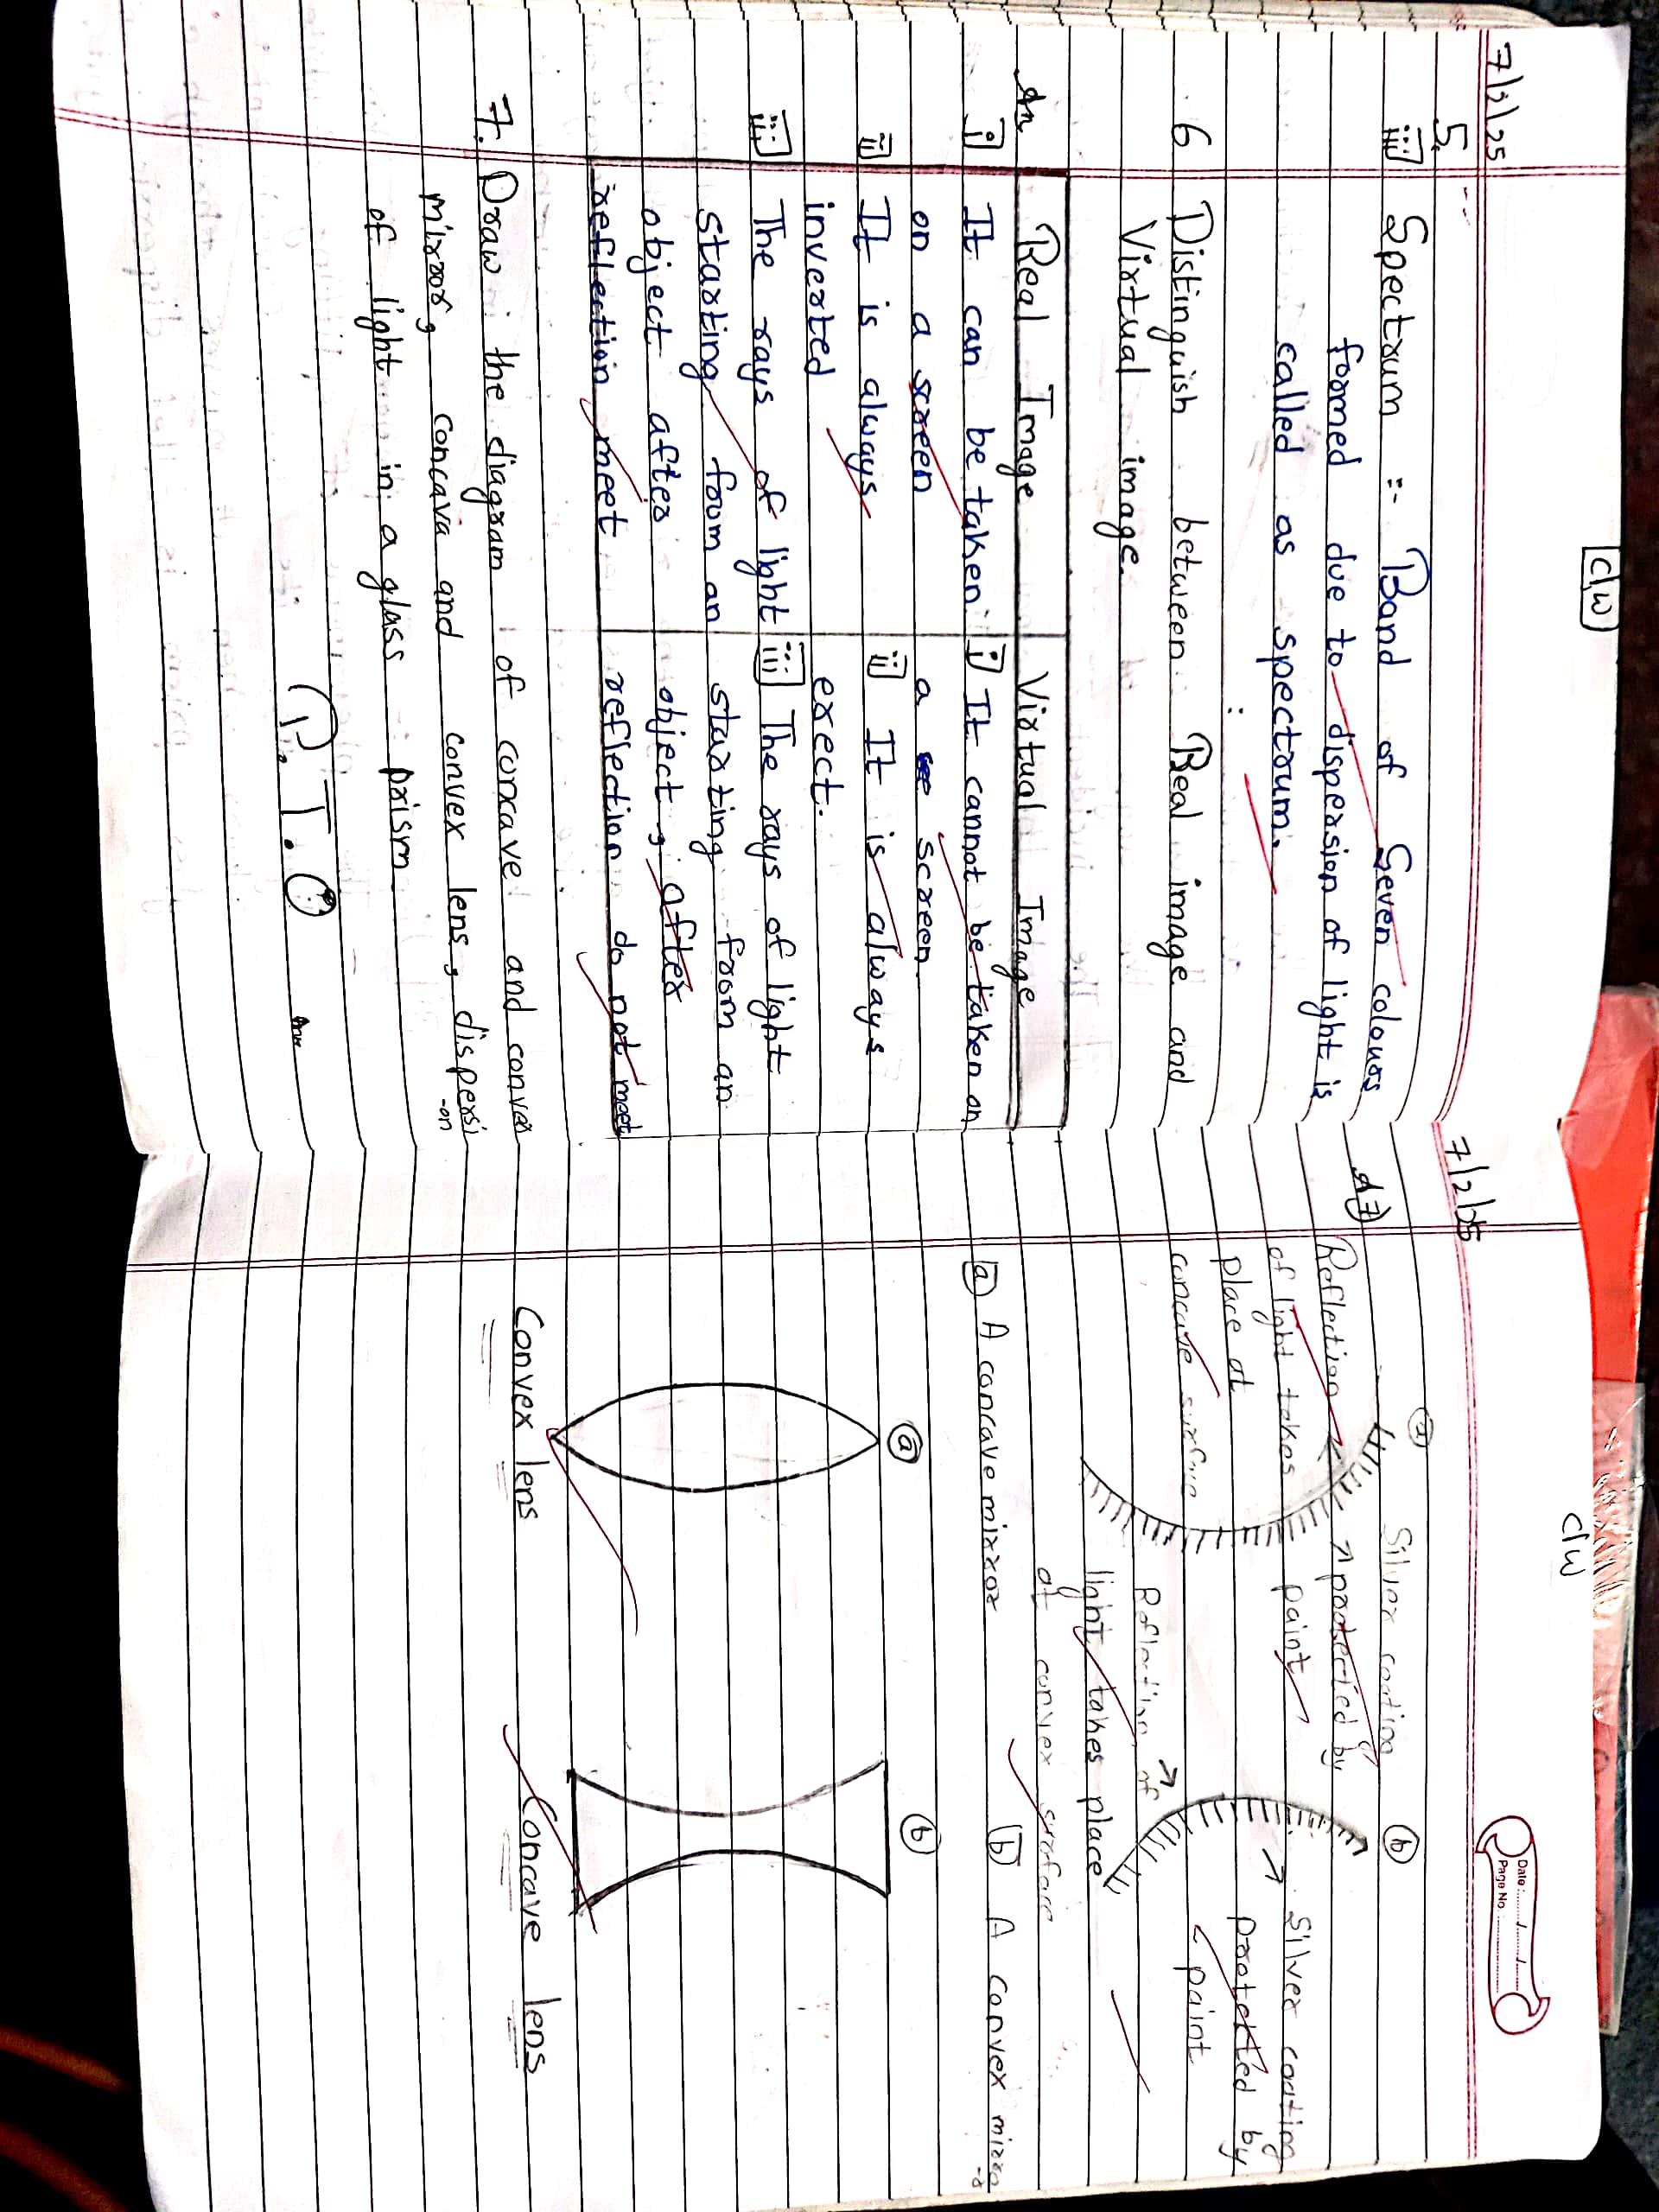 7/2/25
C/W
5.
iii] Spectrum :- Band of Seven colours
formed due to dispersion of light is
called as spectrum.
6 Distinguish between Real image and
Virtual image.
An Real Image Virtual Image
i] It can be taken i] It cannot be taken on
on a screen a screen.
ii] It is always ii] It is always
inverted erect.
iii] The rays of light iii] The rays of light
starting from an starting from an
object after object, after
reflection meet reflection do not meet
7. Draw the diagram of concave and convex
mirror, concava and convex lens, dispersi
-on
of light in a glass prism
P.T.O
7/2/25
C/W
Date :
Page No :
(a) (b)
Silver coating
protected by
paint
Reflection
of light takes
place at
concave surface
Silver coating
protected by
paint
Reflection of
light takes place
at convex surface
a) A concave mirror b) A convex mirro
-r
(a) (b)
Convex lens Concave lens